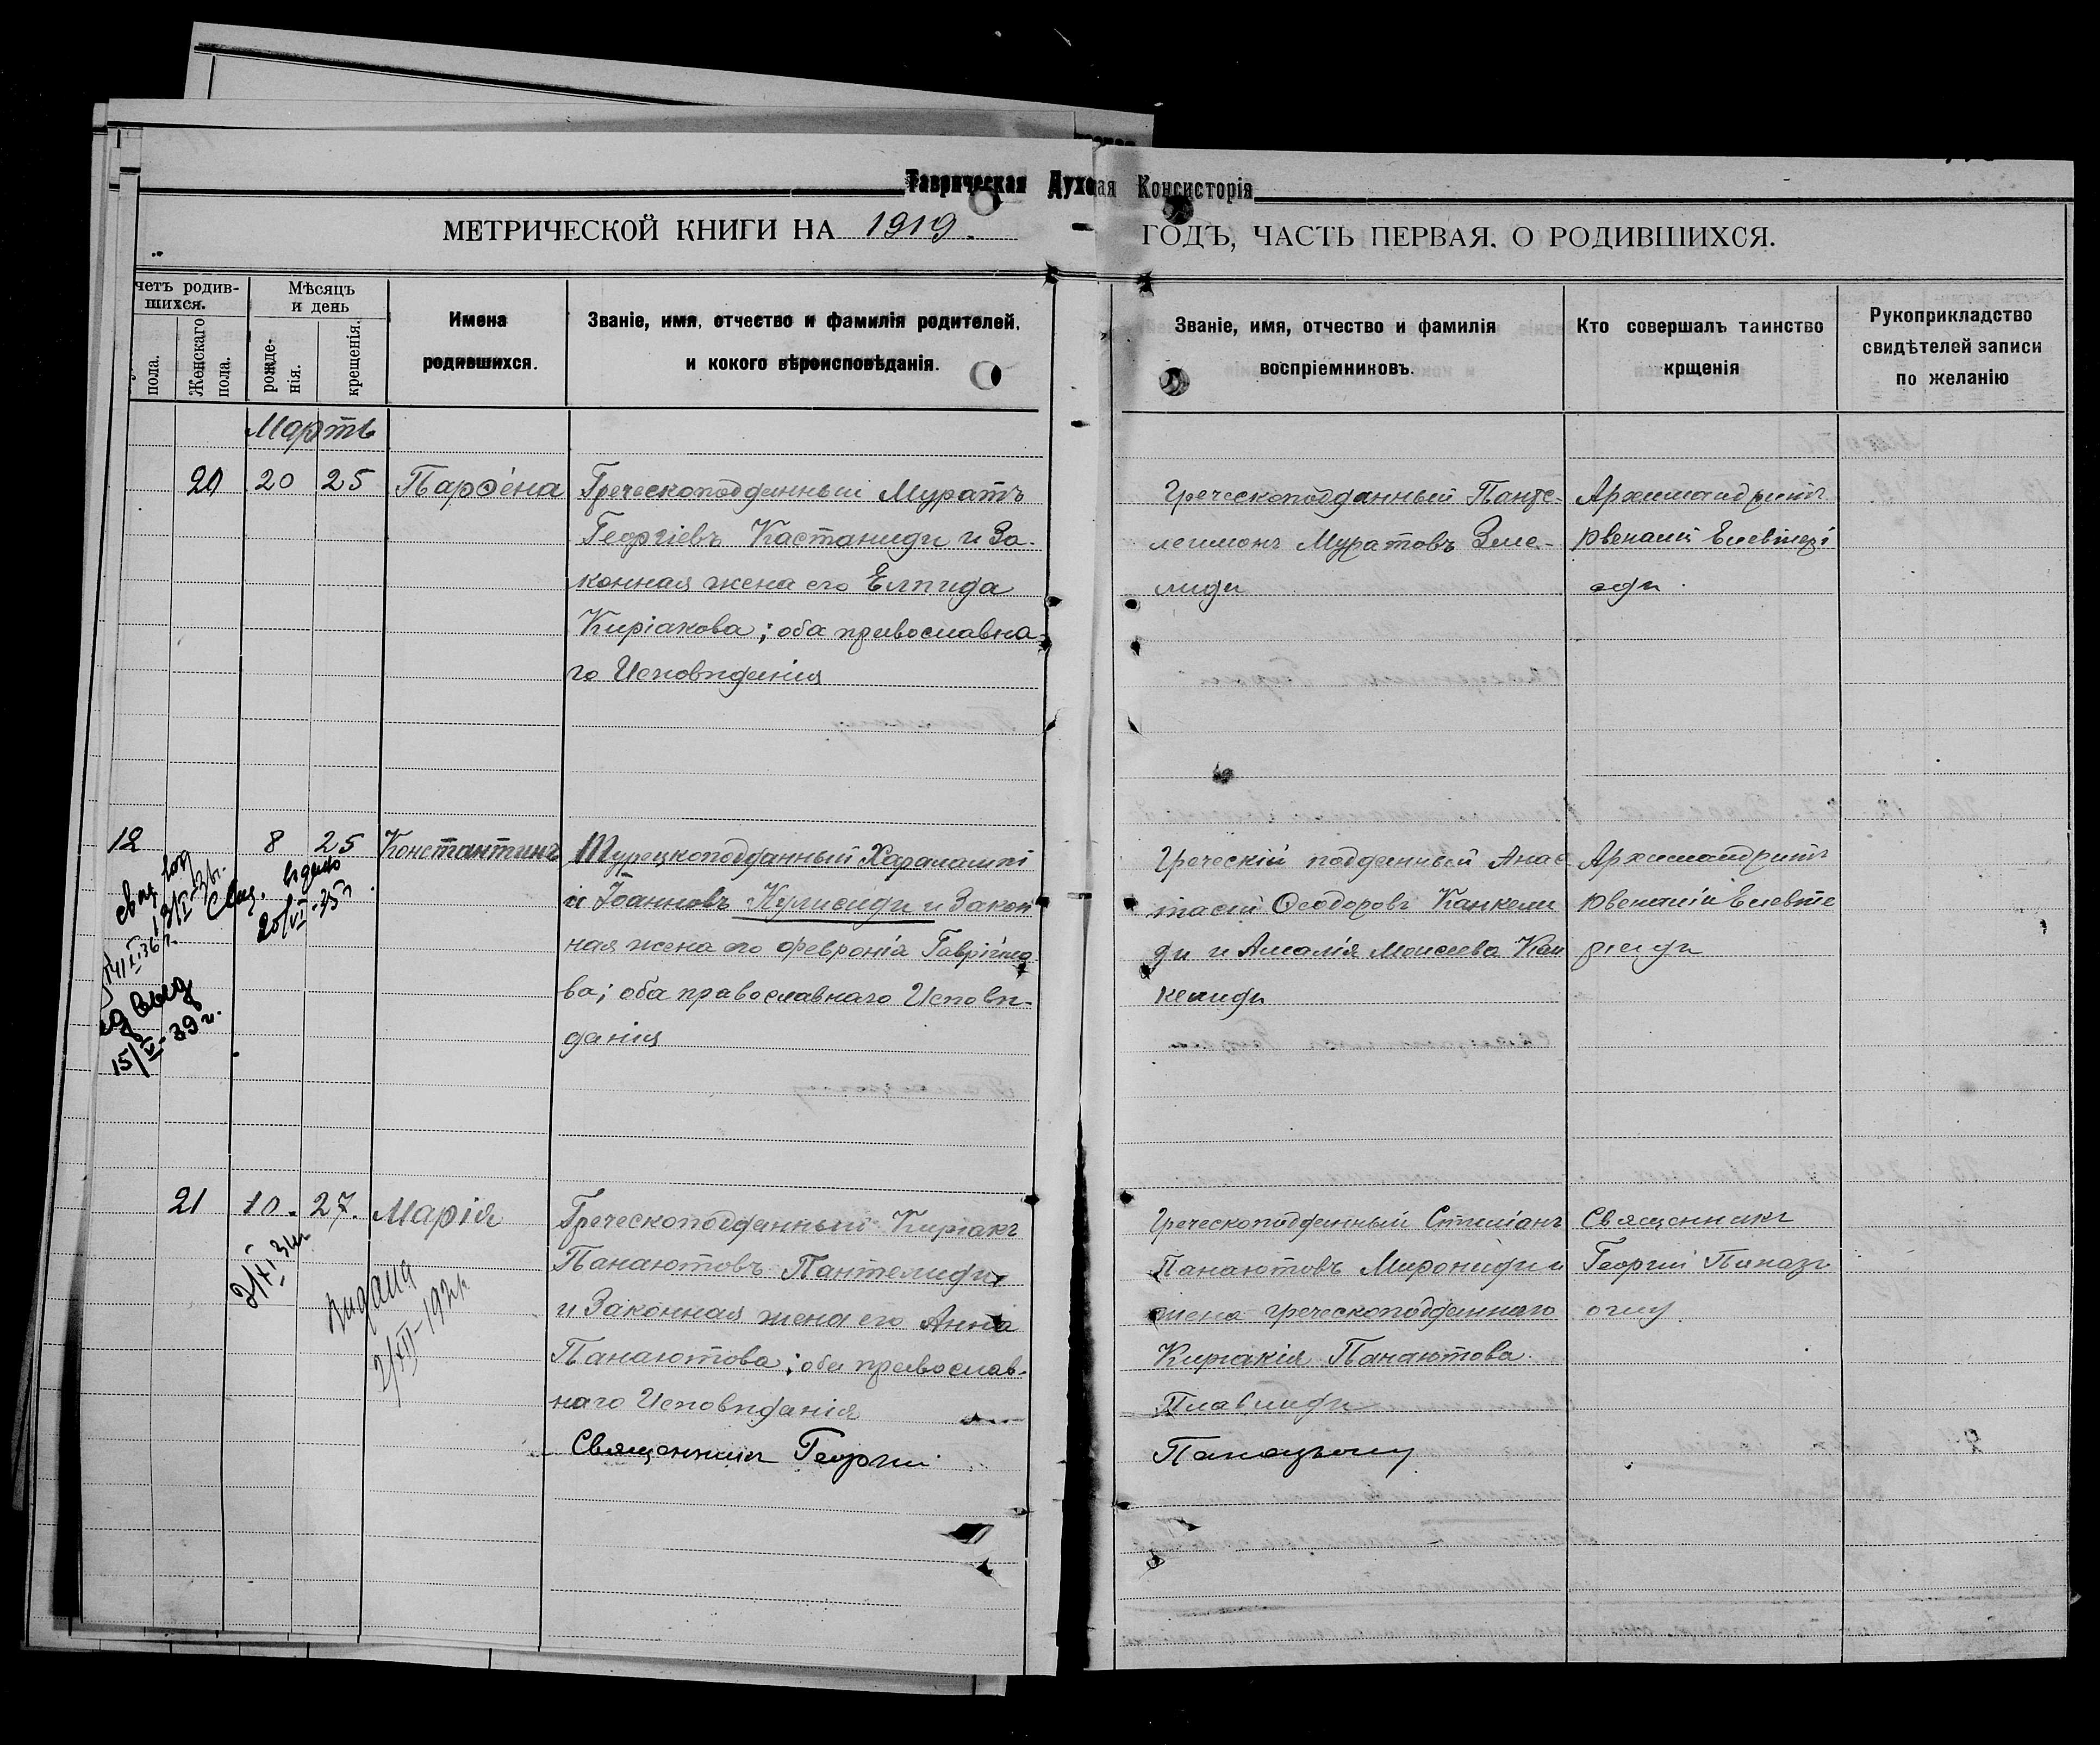 Таврическая Духо ая Консисторія
МЕТРИЧЕСКОЙ КНИГИ НА 1919. ГОДЪ, ЧАСТЬ ПЕРВАЯ, О РОДИВШИХСЯ.
четъ родив-
шихся.
пола.
Женскаго
пола.
Мѣсяцъ
и день
рожде-
нія.
крещенія.
Имена
родившихся.
Званіе, имя, отчество и фамилія родителей,
и кокого вѣроисповѣданія.
Званіе, имя, отчество и фамилія
воспріемниковъ.
Кто совершалъ таинство
крщенія
Рукоприкладство
свидѣтелей записи
по желанію
Мартъ
20 20 25 Парѳена
Греческоподданный Муратъ
Георгіевъ Кастаниди и За-
конная жена его Елпида
Киріакова; оба православна-
го Исповѣданія
Греческоподданный Панте-
леимонъ Муратовъ
лиди
Архимандритъ
12 8 25 Константинъ
Турецкоподданный Харалампі
й Іоанновъ Кулисиди и Закон
ная жена его Февронія Гаврі
ва; оба православнаго Исповѣ-
данія
Греческій подданный Анас
тасій Ѳеодоровъ Канкели
ди и Амалія Моисеева Кан
келиди
Архимандритъ
Свид. видано
20/VI-35
выд
15/V-39 г.
21 10. 27. Марія
Греческоподданный Киріакъ
Панаютовъ Пантелиди
и Законная жена его Анна
Панаютова; оба православ-
наго Исповѣданія
Священникъ Георгій
Греческоподданный Стиліанъ
Панаютовъ Мирониди и
жена греческоподданнаго
Киріакія Панаютова
Священникъ
Георгій
2/XI
Видана